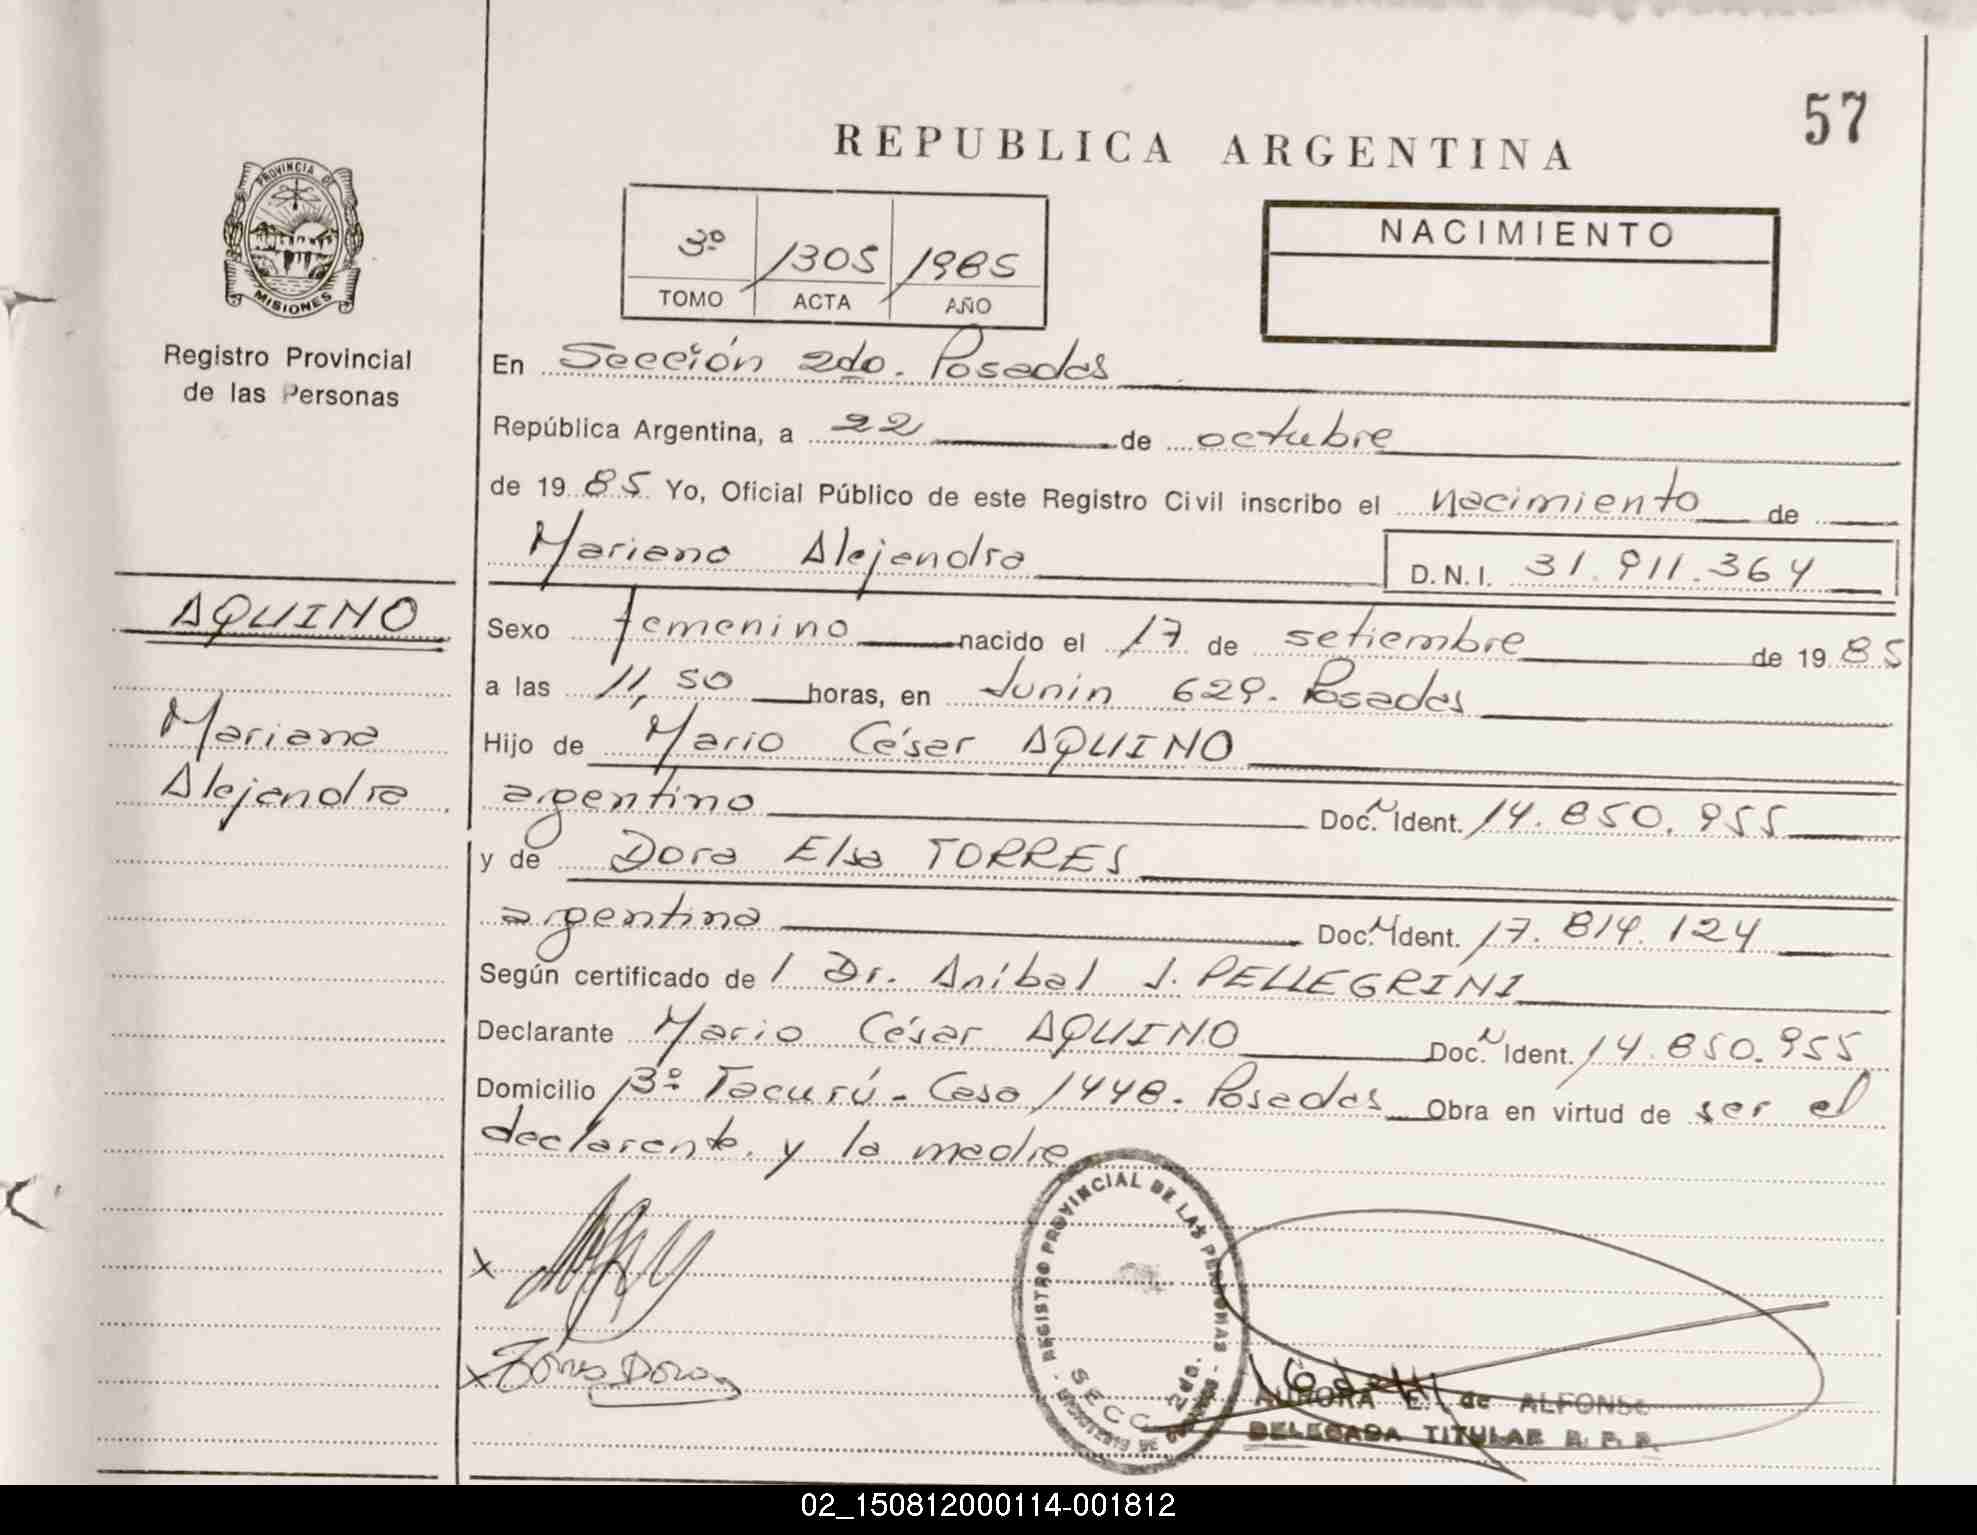 57
REPUBLICA ARGENTINA
PROVINCIA DE
MISIONES
Registro Provincial
de las Personas
3º 1305 1985
TOMO ACTA AÑO
NACIMIENTO
En Sección 2da. Posadas
República Argentina, a 22 de octubre
de 1985 Yo, Oficial Público de este Registro Civil inscribo el nacimiento de
Mariana Alejandra D.N.I. 31.911.364
AQUINO
Mariana
Alejandra
Sexo femenino nacido el 17 de setiembre de 1985
a las 11,50 horas, en Junín 629. Posadas
Hijo de Mario César AQUINO
argentino Doc. N Ident. 14.850.955
y de Dora Elsa TORRES
argentina Doc. N Ident. 17.814.124
Según certificado de l Dr. Aníbal J. PELLEGRINI
Declarante Mario César AQUINO Doc. N Ident. 14.850.955
Domicilio Bº Tacurú - Casa 1448. Posadas Obra en virtud de ser el
declarante y la madre
REGISTRO PROVINCIAL DE LAS PERSONAS
SECC. 2da.
x
x Torres Dora
AURORA E. de ALFONSO
DELEGADA TITULAR R. P. P.
02_150812000114-001812